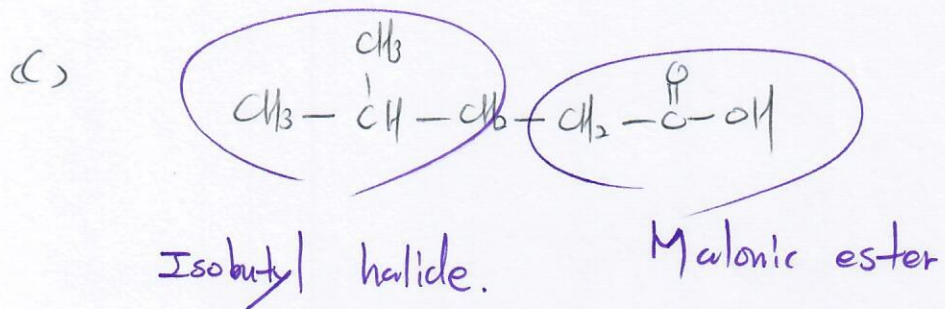 CH3 O
(C) CH3 — CH — CH2 — CH2 — C — OH
Isobutyl halide. Malonic ester